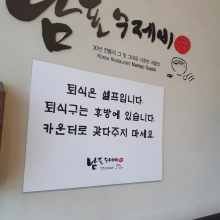 남포수제비
30년 전통의 그 맛 그대로 사랑한 모퉁이
Korea Restaurant Nampo Sujebi
퇴식은 셀프입니다.
퇴식구는 후방에 있습니다.
카운터로 갖다주지 마세요.
남포수제비